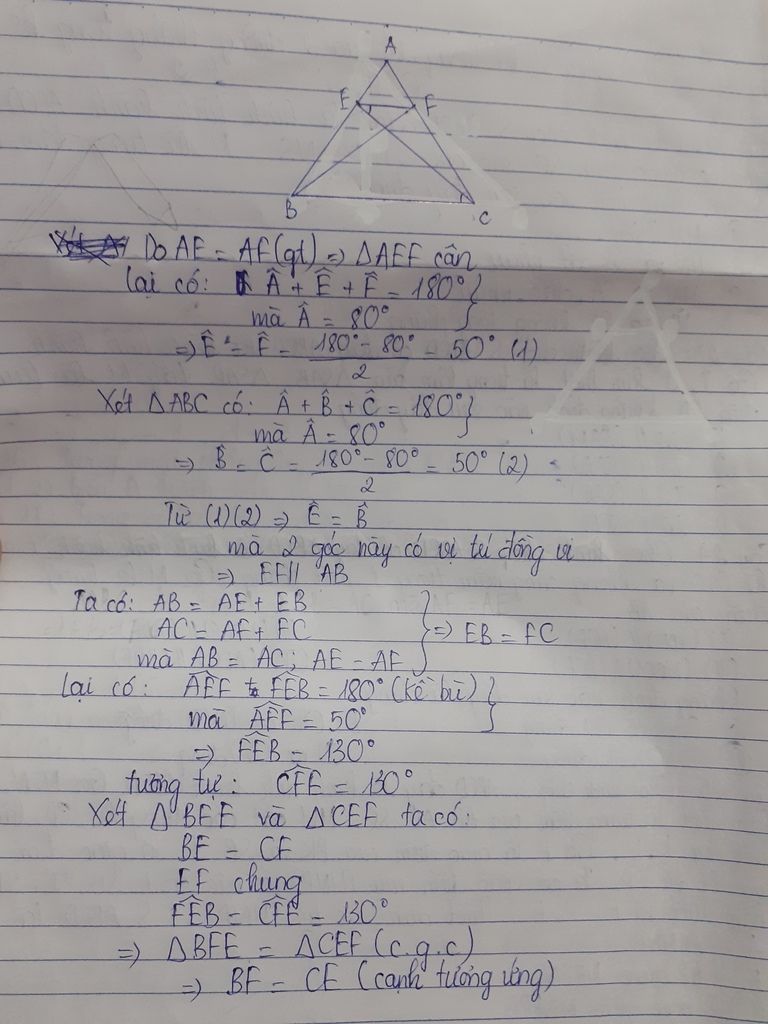 A
E F
B C
Do AE = AF (gt) => ΔAEF cân
lại có: Â + Ê + F̂ = 180° }
mà Â = 80°
=> Ê = F̂ = (180° - 80°)/2 = 50° (1)
Xét ΔABC có: Â + B̂ + Ĉ = 180° }
mà Â = 80°
=> B̂ = Ĉ = (180° - 80°)/2 = 50° (2)
Từ (1)(2) => Ê = B̂
mà 2 góc này có vị trí đồng vi
=> EF // AB
Ta có: AB = AE + EB
AC = AF + FC } => EB = FC
mà AB = AC; AE = AF
lại có: AÊF + FÊB = 180° (kề bù) }
mà AÊF = 50°
=> FÊB = 130°
tương tự: CF̂E = 130°
Xét ΔBFE và ΔCEF ta có:
BE = CF
EF chung
FÊB = CF̂E = 130°
=> ΔBFE = ΔCEF (c.g.c)
=> BF = CE (cạnh tương ứng)